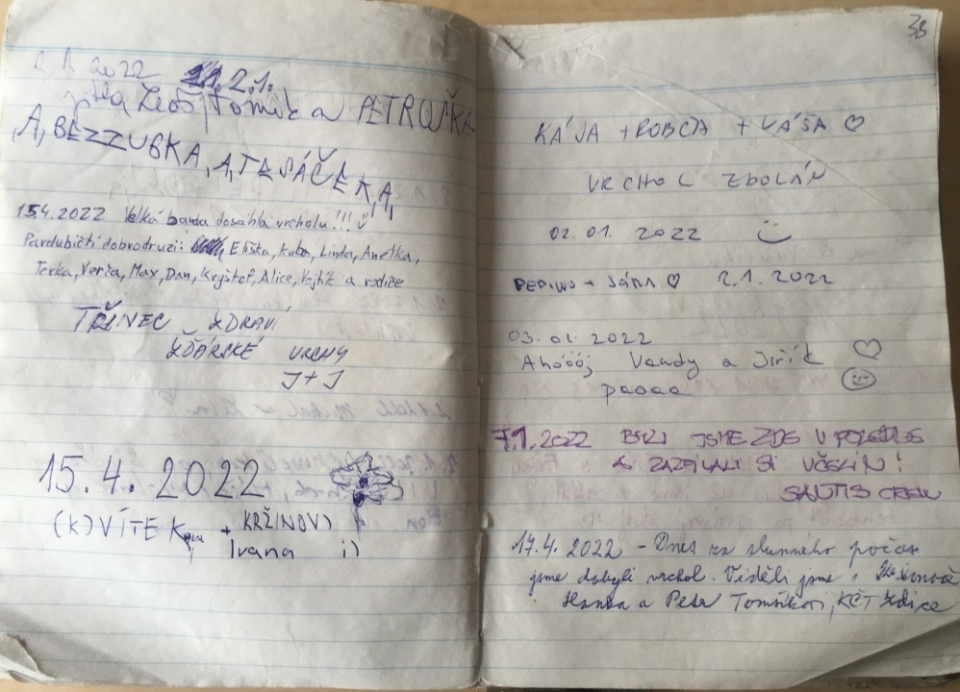 2.1.2022 2.1.
Leoš, Tomík a PETRUŠKA
A, BEZZUBKA, A, TESÁČEK, A,
15.4.2022 Velká banda dosáhla vrcholu!!!
Pardubičtí dobrodruzi: Eliška, Kuba, Linda, Anetka,
Terka, Verča, Max, Dan, Kryštof, Alice, Vojtík a rodiče
TŘINEC ZDRAVÍ
ŽĎÁRSKÉ VRCHY
J+J
15.4.2022
(K)VÍTEK + KRŽINOVI
Ivana ;)
38
KÁJA + ROBČA + VÁŠA ♡
VRCHOL ZBOLÁN
02.01.2022
PEPINO + JÁRA ♡ 2.1.2022
03.01.2022
Ahóóój Vendy a Jiřík ♡
paaaa
7.1.2022 BYLI JSME ZDE V POSEDLES
A ZAZPÍVALI SI
CREW
17.4.2022 - Dnes za slunného počas
jsme dobyli vrchol. Viděli jsme
Hanka a Petr Tomíškovi, KČT